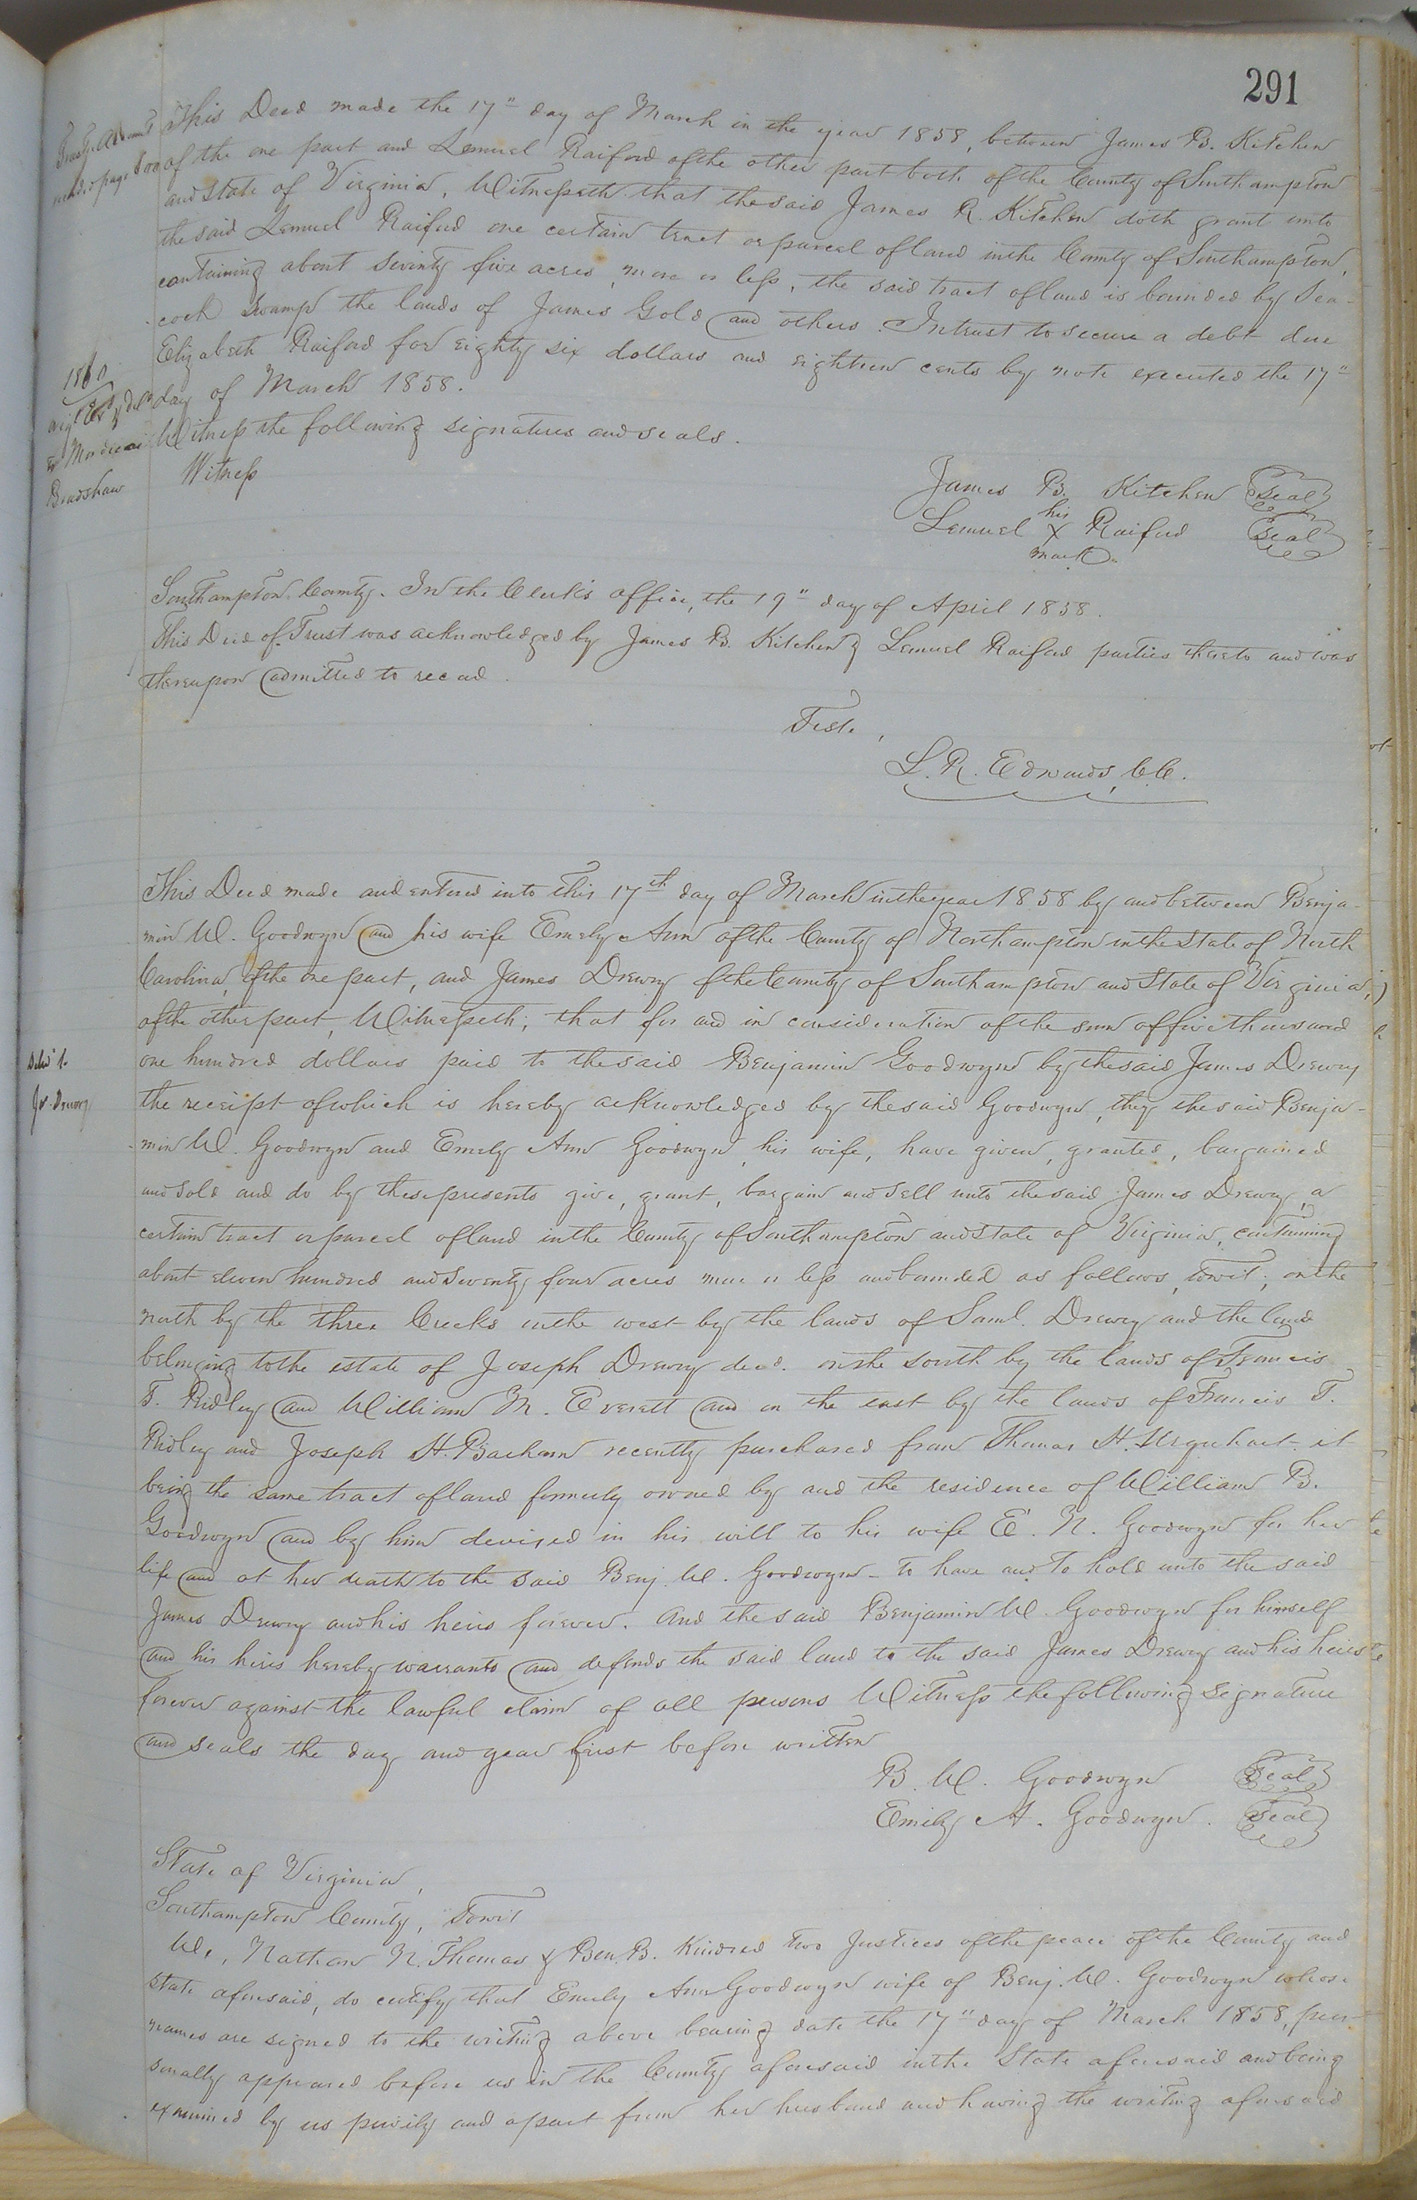 291
This Deed made the 17" day of March in the year 1858, between James B. Kitchen
of the one part and Lemuel Raiford of the other part both of the County of Southampton
and State of Virginia, Witnesseth that the said James R. Kitchen doth grant unto
the said Lemuel Raiford one certain tract or parcel of land in the County of Southampton,
containing about seventy five acres, more or less, the said tract of land is bounded by Sea-
cock Swamp the lands of James Gold and others. In trust to secure a debt due
Elizabeth Raiford for eighty six dollars and eighteen cents by note executed the 17"
day of March 1858.
Witness the following signatures and seals.
Witness
James B. Kitchen Seal
Lemuel his X mark Raiford Seal
1860
Mordecai
Bradshaw
Southampton County. In the Clerk's office, the 19" day of April 1858.
This Deed of Trust was acknowledged by James B. Kitchen & Lemuel Raiford parties thereto and was
thereupon admitted to record.
Teste,
L. R. Edwards, C.C.
This Deed made and entered into this 17th day of March in the year 1858 by and between Benja-
min W. Goodwyn and his wife Emely Ann of the County of Northampton in the State of North
Carolina, of the one part, and James Drewry of the County of Southampton and State of Virginia,
of the other part, Witnesseth; that for and in consideration of the sum of five thousand
one hundred dollars paid to the said Benjamin Goodwyn by the said James Drewry
the receipt of which is hereby acknowledged by the said Goodwyn, they the said Benja-
min W. Goodwyn and Emely Ann Goodwyn, his wife, have given, granted, bargained
and sold and do by these presents give, grant, bargain and sell unto the said James Drewry, a
certain tract or parcel of land in the County of Southampton and State of Virginia, containing
about eleven hundred and seventy four acres more or less and bounded as follows, towit; on the
north by the three Creeks on the west by the lands of Saml. Drewry and the land
belonging to the estate of Joseph Drewry decd. on the south by the lands of Francis
T. Ridley and William M. Everett and on the east by the lands of Francis T.
Ridley and Joseph H. Barham recently purchased from Thomas H. Urquhart. it
being the same tract of land formerly owned by and the residence of William B.
Goodwyn and by him devised in his will to his wife E. N. Goodwyn for her
life and at her death to the said Benj. W. Goodwyn - to have and to hold unto the said
James Drewry and his heirs forever. And the said Benjamin W. Goodwyn for himself
and his heirs hereby warrants and defends the said land to the said James Drewry and his heirs
forever against the lawful claim of all persons Witness the following signature
and seals the day and year first before written
B. W. Goodwyn Seal
Emily A. Goodwyn. Seal
Deliv'd.
Js. Drewry
State of Virginia,
Southampton County, Towit
We, Nathan N. Thomas & Ben. B. Kindred two Justices of the peace of the County and
State aforesaid, do certify that Emely Ann Goodwyn wife of Benj. W. Goodwyn whose
names are signed to the writing above bearing date the 17" day of March 1858, per-
sonally appeared before us in the County aforesaid in the State aforesaid and being
examined by us privily and apart from her husband and having the writing aforesaid